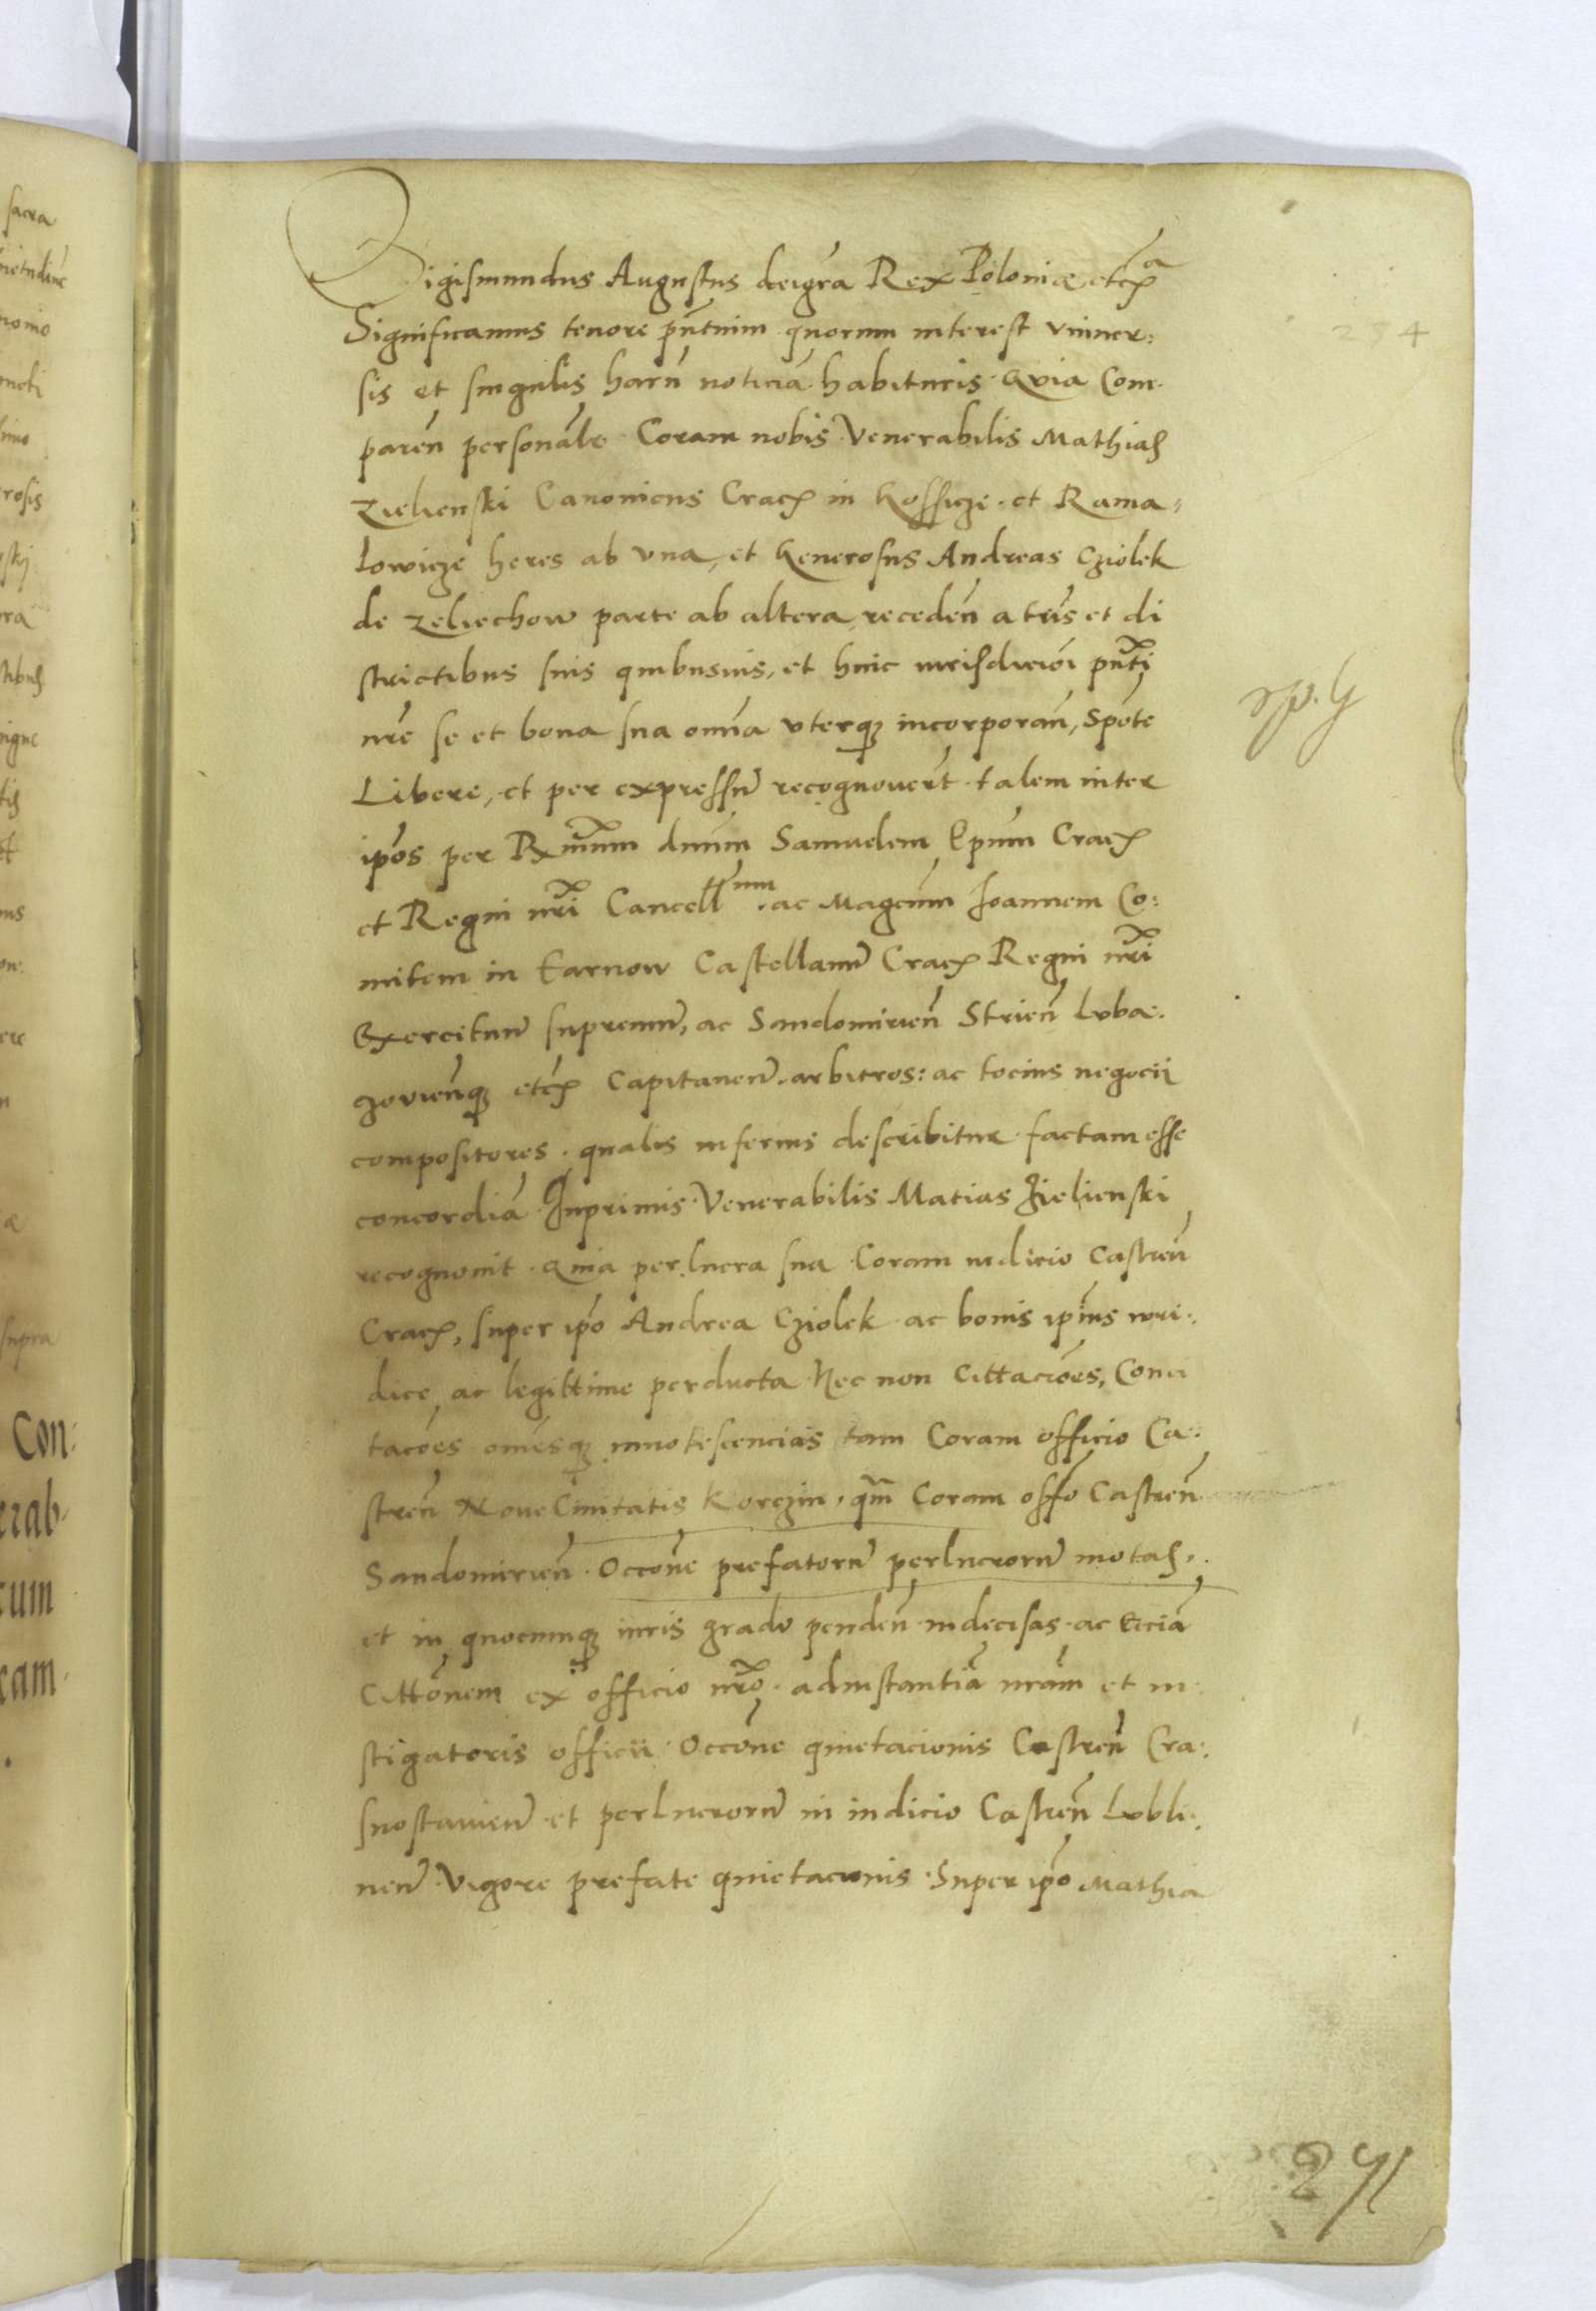 Sigismundus Augustus deigra Rex Poloniæ etcᵃ
Significamus tenore pñtium quorum interest vniuer:
sis et singulis harũ noticiã habituris. Quia Com.
paren̄ personal̄r Coram nobis Venerabilis Mathias
Zielienski Canonicus Crac̄ in Kossicze et Rama,
lowicze heres ab vna, et Generosus Andreas Cziolek
de Zeliechow parte ab altera, receden̄ a tr̄is et di
strictibus suis quibusuis, et huic iurisdicioi pñti
nr̄e se et bona sua om̄ia vterq; incorporan̄, Spōte
Libere, et per expressũ recognouer̄t talem inter
ip̄os per Rx̄mum dnũm Samuelem Ep̄um Crac̄
et Regni nr̄i Cancell̄num. ac Mag̃cum Joannem Co:
mitem in Tarnow Castellanũ Crac̄ Regni nr̄i
Exercituũ supremũ, ac Sandomirien̄ Strien̄ Luba.
czovien̄q; etc̄ Capitaneũ. arbitros: ac tocius negocii
compositores. qualis inferius describitur factam esse
concordiã. Inprimis Venerabilis Matias Zielienski
recognouit. Quia perlucra sua Coram iudicio Castren̄
Crac̄, super ip̄o Andrea Cziolek ac bonis ip̄ius iuri:
dice ac legittime perducta. Nec non Cittacōes, Conci
tacōes om̄esq; innotescencias tam Coram officio Ca:
stren̄ Noue Ciuitatis Korczin, qm̄ Coram offō Castren̄
Sandomirien̄. Occōne prefatorũ perlucrorũ motas,.
et in quocumq; iuris gradu penden̄ indecisas. ac Eciã
Cittōnem ex officio nr̄o. adinstantiã nr̄am et in
stigatoris officii. Occōne quietacionis Castren̄ Cra:
snostauien̄. et perlucrorũ in iudicio Castren̄ Lubli:
nen̄. Vigore prefate quietacionis. Super ip̄o Mathia
274
271
sacra
nomo
rosis
ra
supra
Con:
erab
cum
cam.